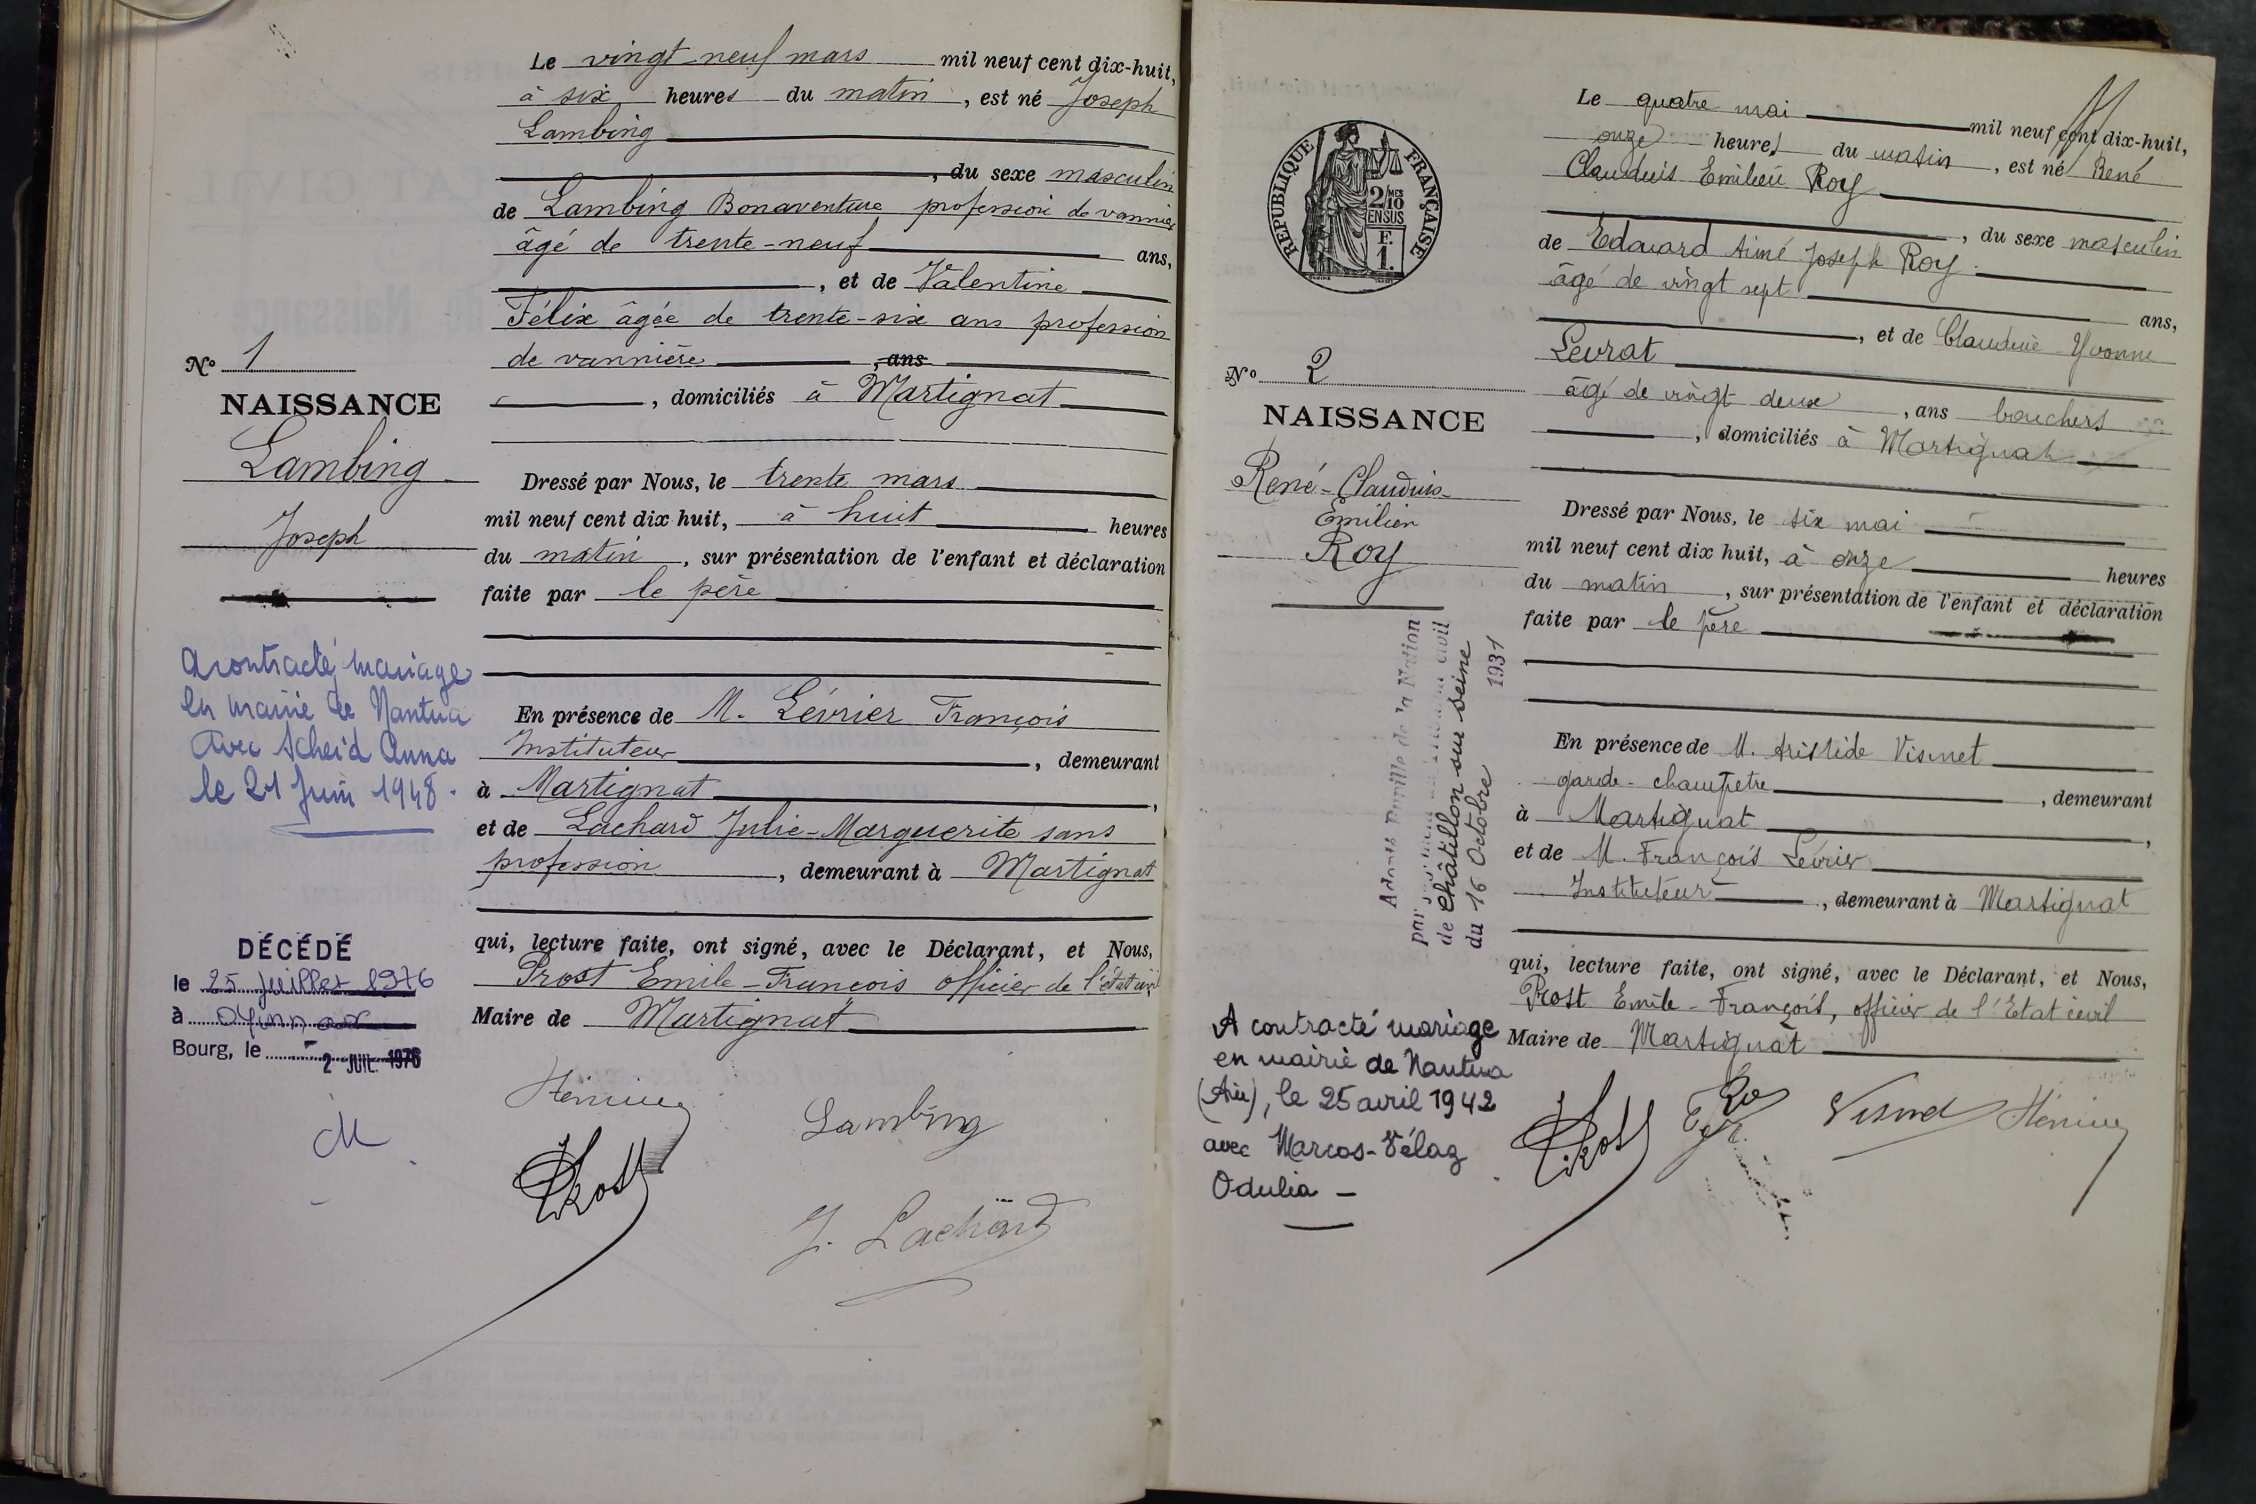 Le vingt neuf mars mil neuf cent dix-huit,
à six heures du matin, est né Joseph
Lambing
, du sexe masculin
de Lambing Bonaventure profession de vannier
âgé de trente-neuf ans,
, et de Valentine
Félix âgée de trente-six ans profession
de vannière , ans
, domiciliés à Martignat
Nº 1
NAISSANCE
Lambing
Joseph
Dressé par Nous, le trente mars
mil neuf cent dix huit, à huit heures
du matin, sur présentation de l'enfant et déclaration
faite par le père
A contracté mariage
en mairie de Nantua
avec Scheid Anna
le 21 Juin 1948.
En présence de M. Lévrier François
Instituteur , demeurant
à Martignat ,
et de Lachard Julie-Marguerite sans
profession , demeurant à Martignat
qui, lecture faite, ont signé, avec le Déclarant, et Nous,
Prost Emile-François officier de l'état civil
Maire de Martignat
DÉCÉDÉ
le 25 juillet 1976
à
Bourg, le 2 JUIL. 1976
Lambing
Prost
J. Lachard
Le quatre mai mil neuf cent dix-huit,
onze heures du matin, est né René
Claudius Emilien Roy
, du sexe masculin
de Edouard Aimé Joseph Roy
âgé de vingt sept ans,
, et de Claudine Yvonne
Levrat
âgé de vingt deux , ans bouchers
, domiciliés à Martignat
RÉPUBLIQUE FRANÇAISE
2/10 MES
EN SUS
F.
1.
Nº 2
NAISSANCE
René-Claudius-
Emilien
Roy
Dressé par Nous, le six mai
mil neuf cent dix huit, à onze heures
du matin , sur présentation de l'enfant et déclaration
faite par le père
Adopté Pupille de la Nation
par civil
de Châtillon sur Seine
du 16 Octobre 1931
En présence de M. Aristide Visinet
garde-champetre , demeurant
à Martignat ,
et de M. François Lévrier
Instituteur , demeurant à Martignat
qui, lecture faite, ont signé, avec le Déclarant, et Nous,
Prost Emile-François, officier de l'Etat civil
Maire de Martignat
A contracté mariage
en mairie de Nantua
(Ain), le 25 avril 1942
avec Marcos-Vélaz
Odulia –
Prost